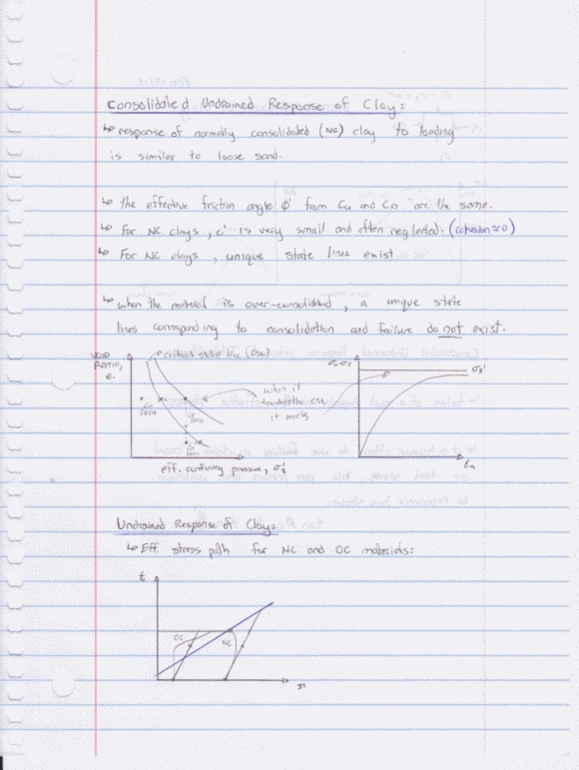 Consolidated Undrained Response of Clay:
↳ response of normally consolidated (NC) clay to loading
is similar to loose sand.
↳ the effective friction angle ϕ' from Cu and CD are the same.
↳ For NC clays, c' is very small and often neglected. (cohesion≈0)
↳ For NC clays, unique state lines exist
↳ when the material is over-consolidated, a unique state
lines corresponding to consolidation and failure do not exist.
VOID
RATIO,
e.
critical state line (CSL)
when it
touches the CSL
it meets
eff. confining pressure, σ3'
σ3'
εa
Undrained Response of Clay:
↳ Eff. stress path for NC and OC materials:
t
OC
NC
s'